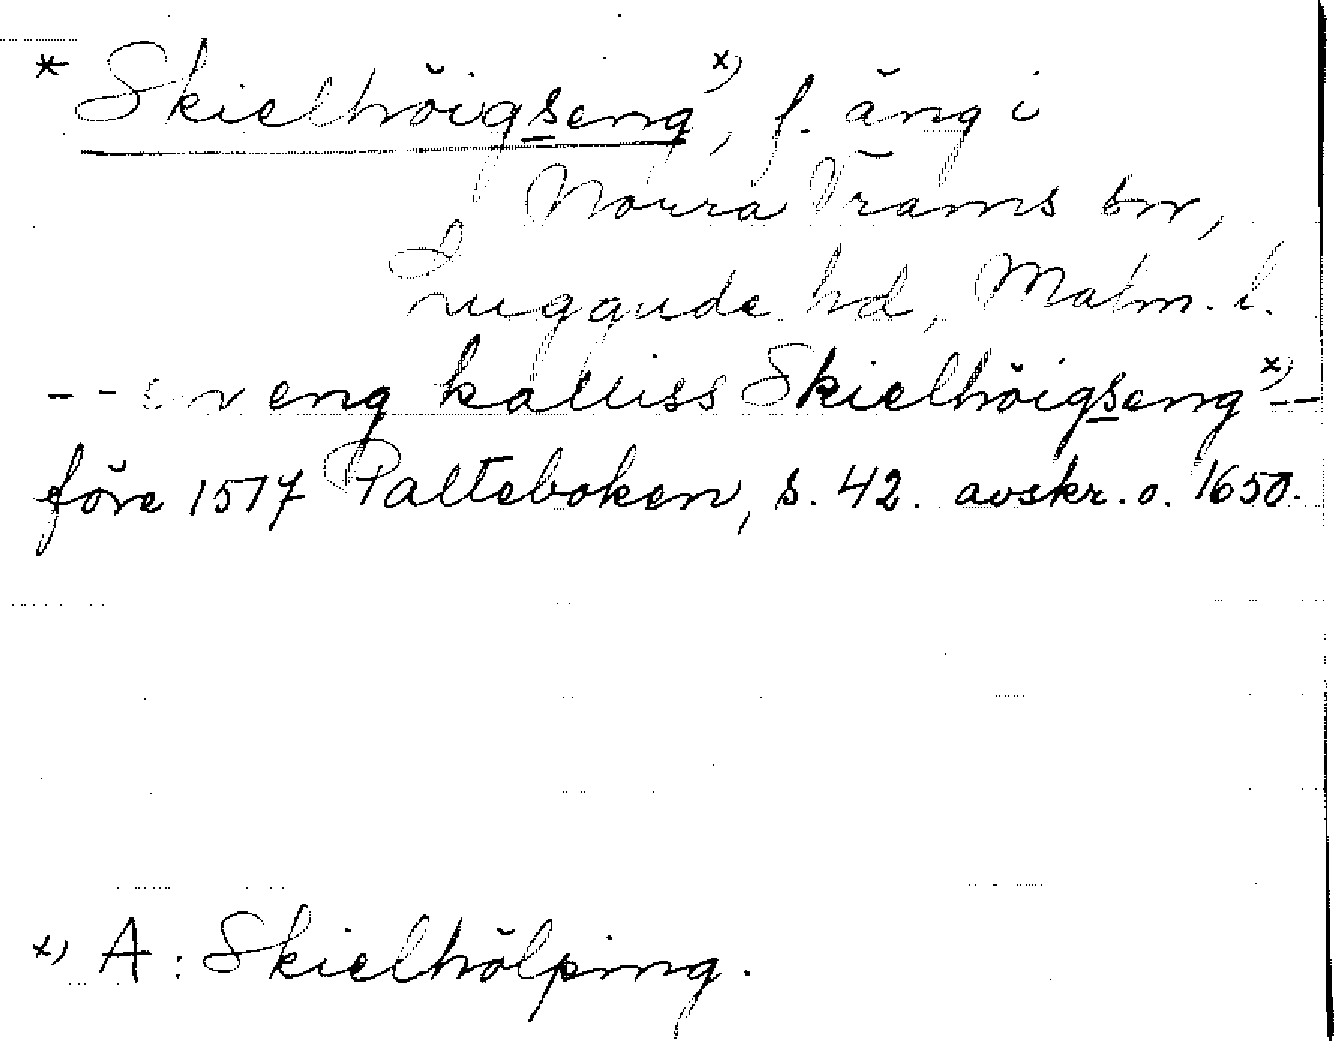 * Skielhöigseng x), f. äng i
Norra Vrams sn,
Luggude hd, Malm. l.
-- en eng kalliss Skielhöigseng x) --
före 1517 Palteboken, s. 42. avskr. o. 1650.
x) A: Skielhölping.